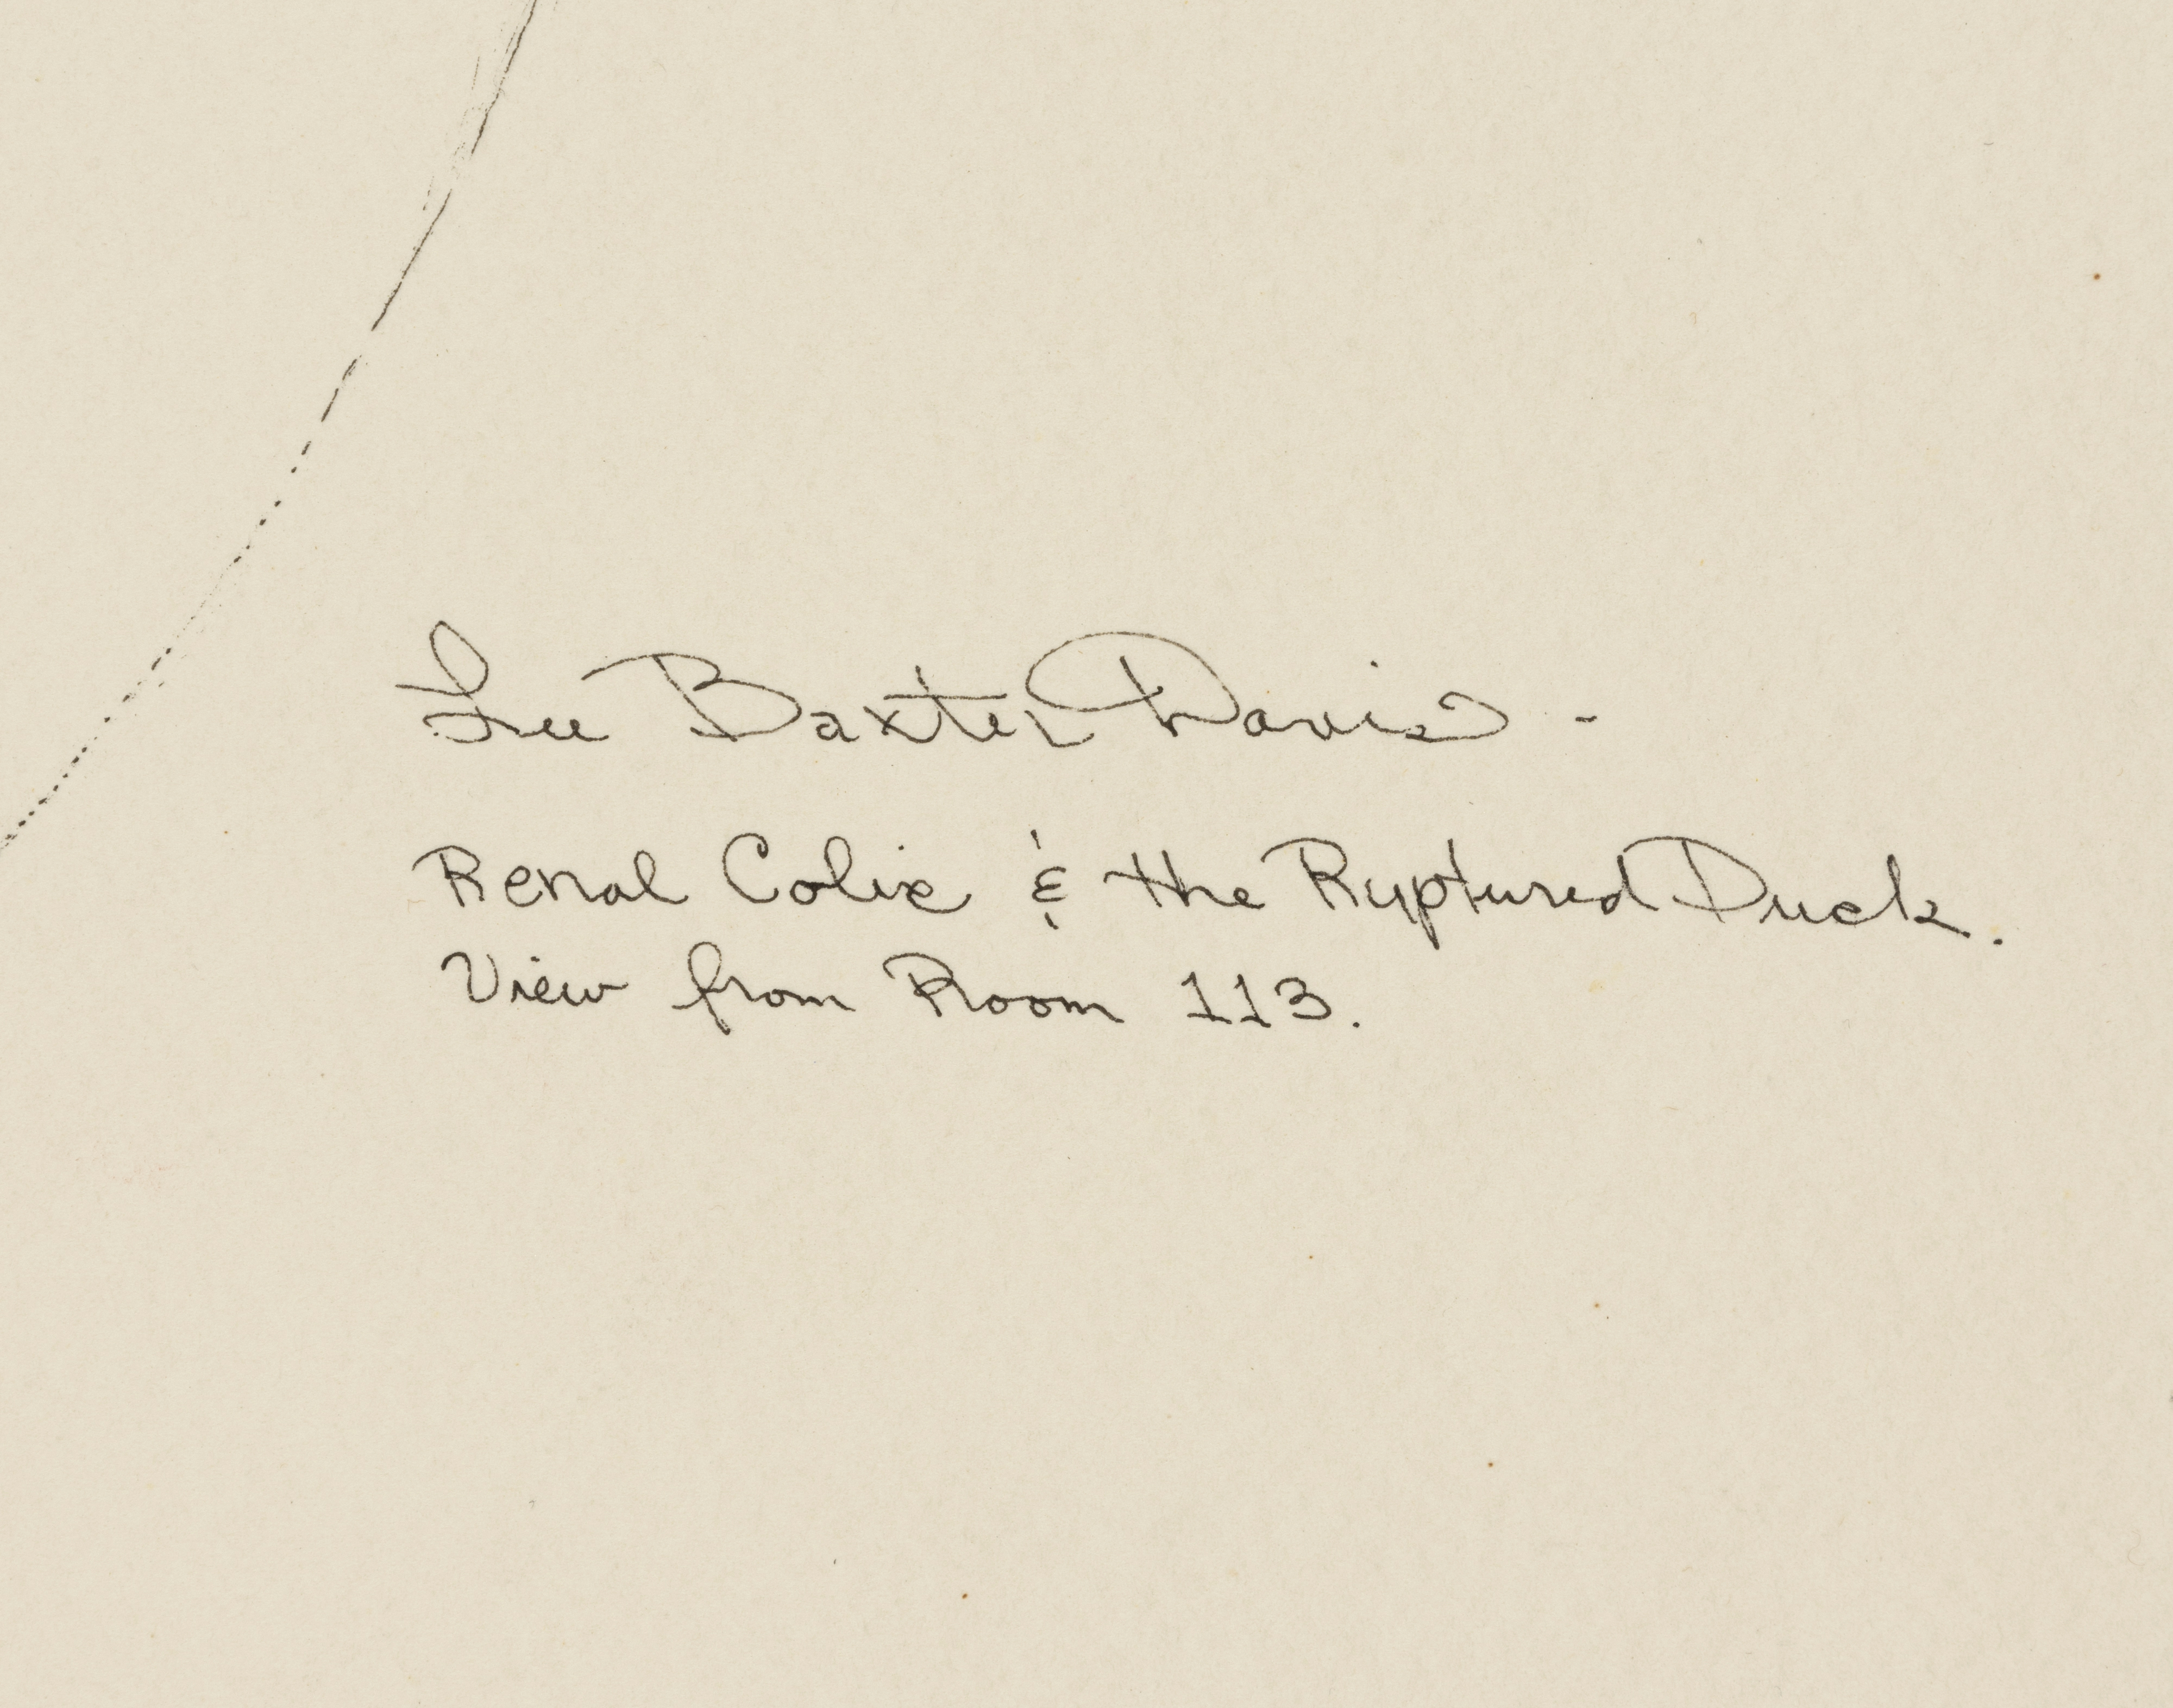 Lee Baxter Davis -
Renal Colic & the Ruptured Duck.
View from Room 113.